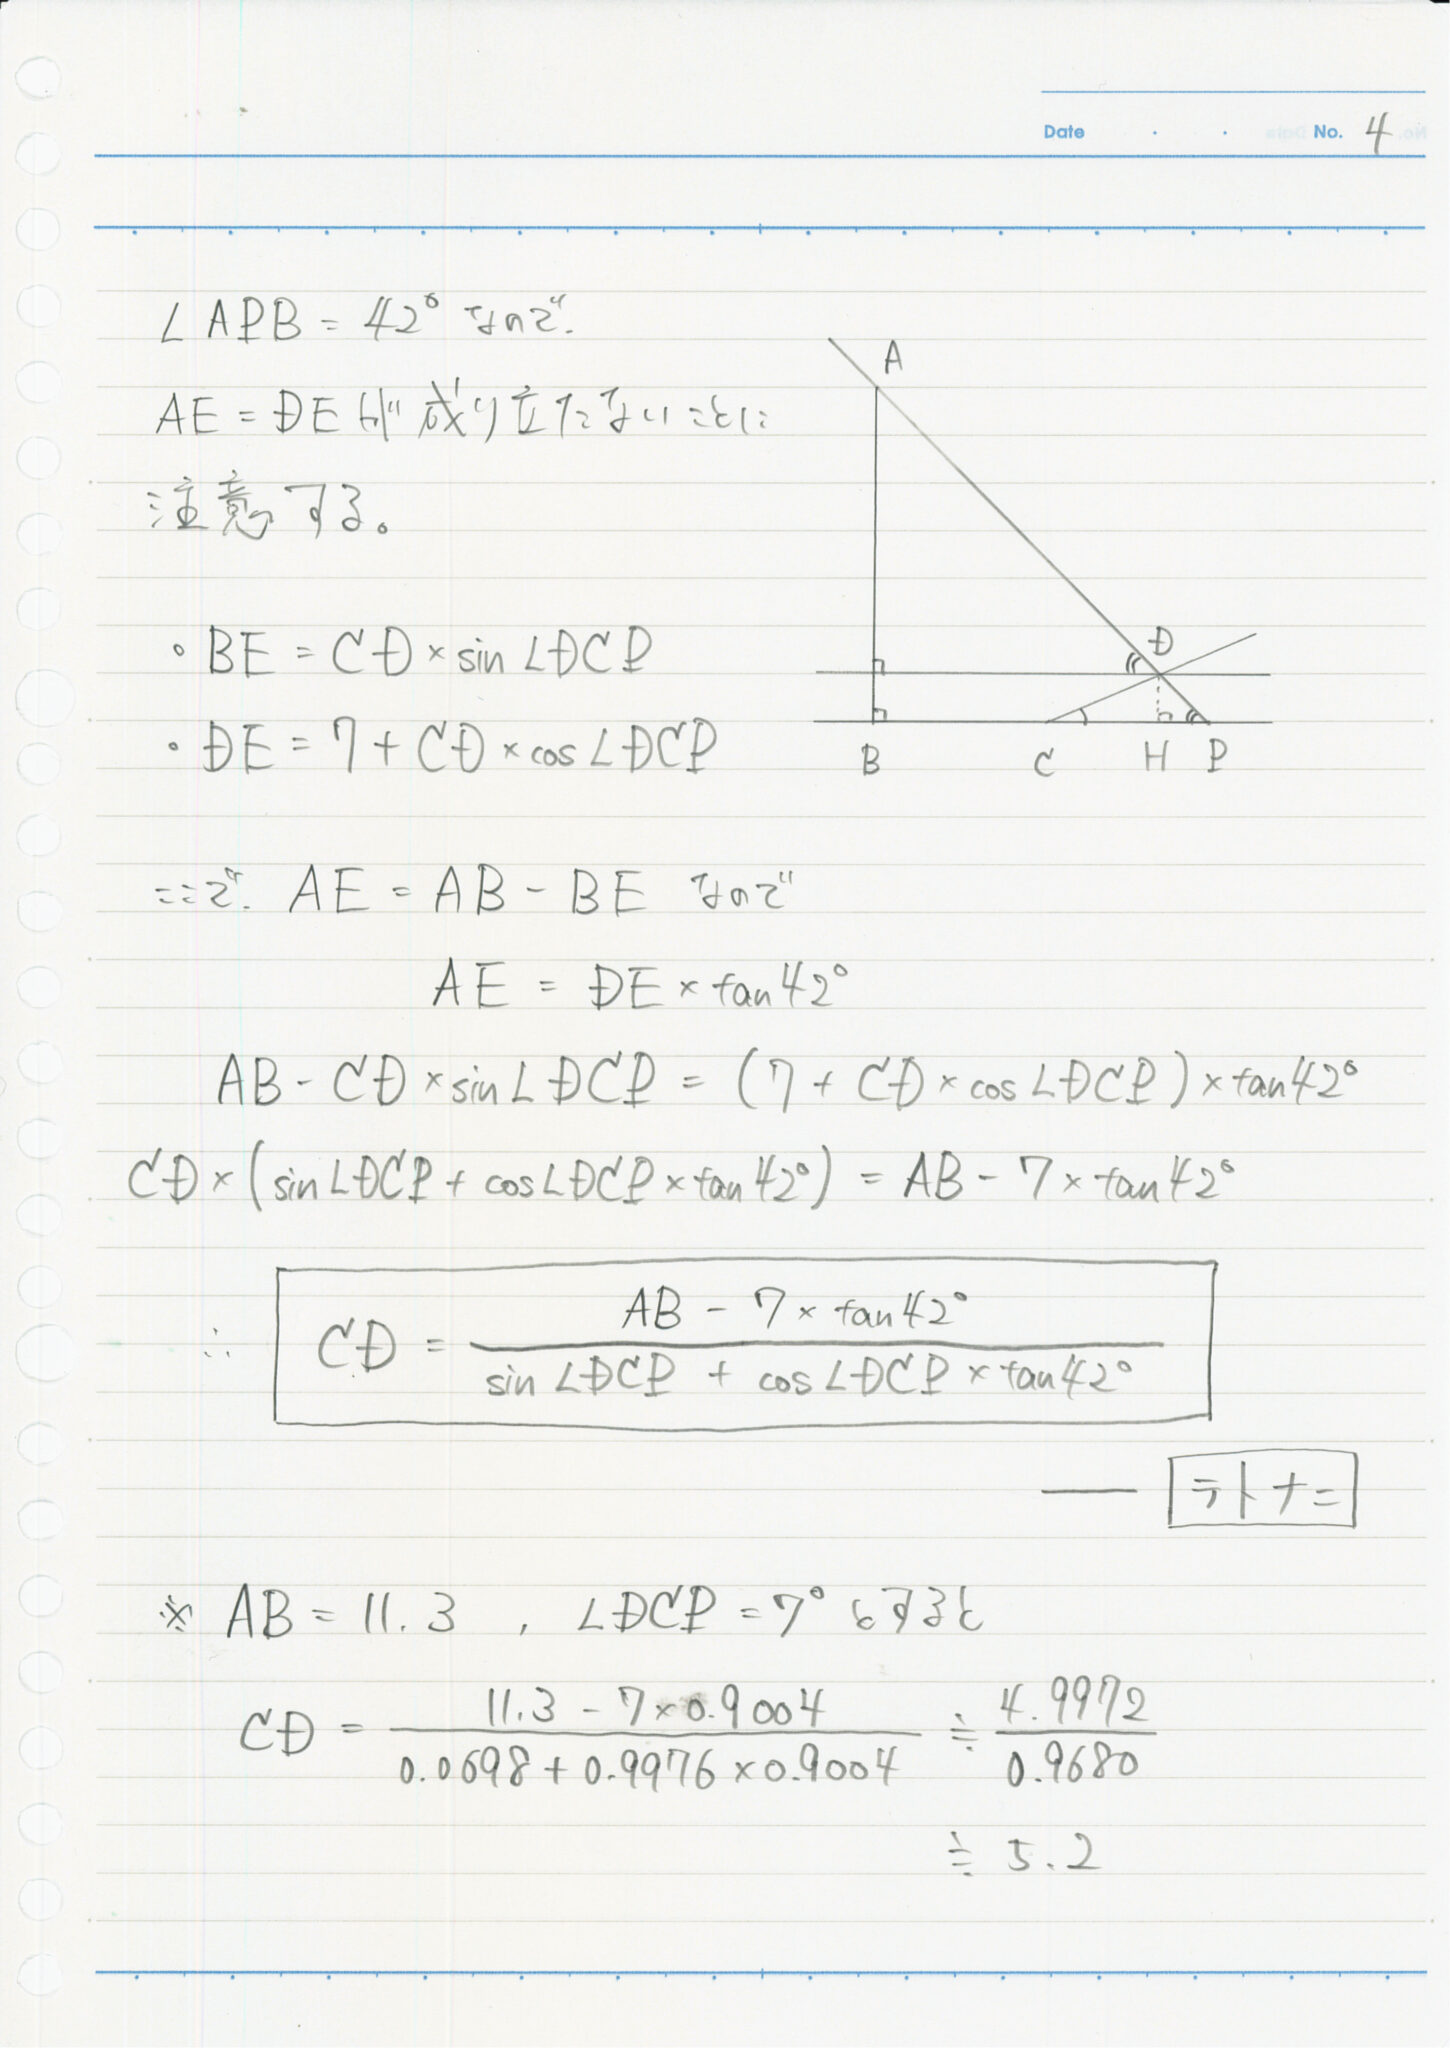 Date ・ ・ No. 4
∠APB = 42° なので、
AE = DE が成り立たないことに
注意する。
・BE = CD × sin∠DCP
・DE = 7 + CD × cos∠DCP
A
D
B C H P
ここで、AE = AB - BE なので
AE = DE × tan42°
AB - CD × sin∠DCP = (7 + CD × cos∠DCP) × tan42°
CD × (sin∠DCP + cos∠DCP × tan42°) = AB - 7 × tan42°
AB - 7 × tan42°
∴ CD =
sin∠DCP + cos∠DCP × tan42°
テトナニ
※ AB = 11.3 , ∠DCP = 7° とすると
11.3 - 7 × 0.9004 4.9972
CD = ≒
0.0698 + 0.9976 × 0.9004 0.9680
≒ 5.2